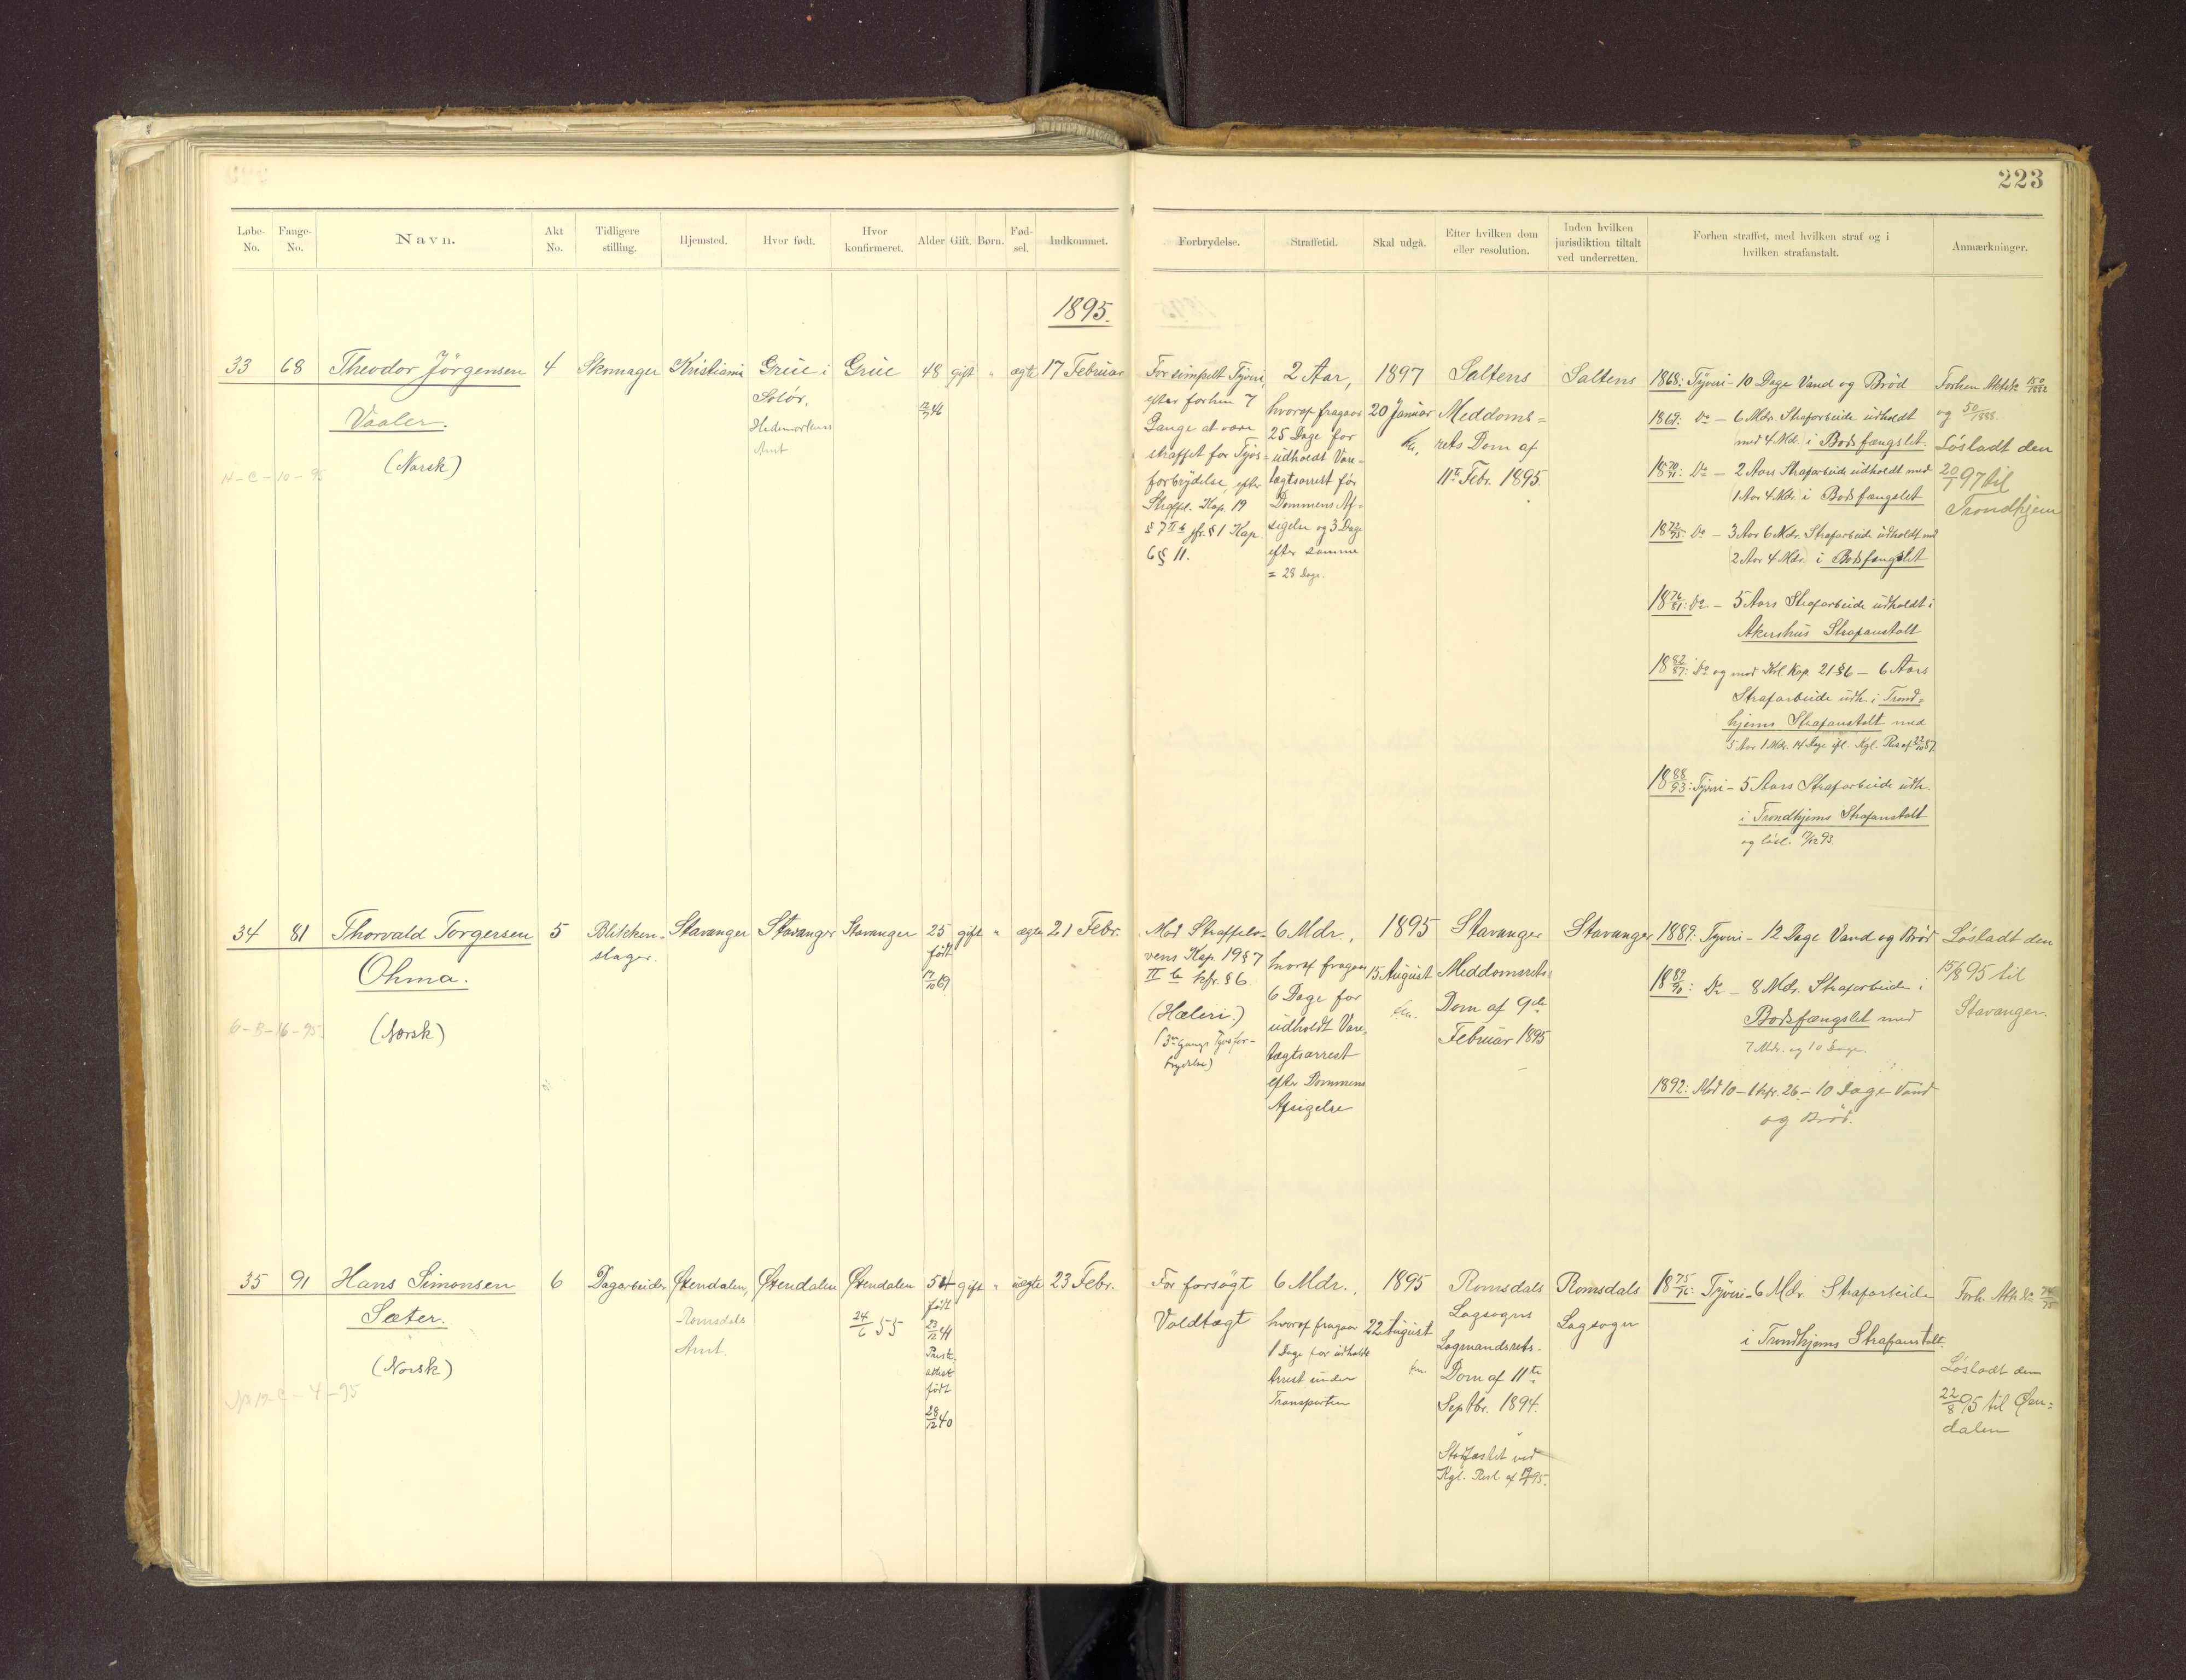 223
Løbe-No.
Fange-No.
Navn.
Akt No.
Tidligere stilling.
Hjemsted.
Hvor født.
Hvor konfirmeret.
Alder
Gift.
Børn.
Fød-sel.
Indkommet.
Forbrydelse.
Straffetid.
Skal udgå.
Efter hvilken dom eller resolution.
Inden hvilken jurisdiktion tiltalt ved underretten.
Forhen straffet, med hvilken straf og i hvilken strafanstalt.
Anmærkninger.
1895.
33
68
Theodor Jörgensen
Vaaler.
(Norsk)
N-C-10-95
4
Skomager
Kristiania
Grue i
Solör.
Hedemarkens
Amt
Grue
48
12/7 46
gift
"
ægte
17 Februar
For simpelt Tyveri,
efter forhen 7
Gange at være
straffet for Tyvs=
forbrydelse, efter
Straffel. Kap. 19
§ 7 II b jfr. § 1 Kap.
6 § 11.
2 Aar,
hvoraf fragaar
25 Dage for
udholdt Vare-
tægtsarrest før
Dommens Af=
sigelse og 3 Dage
efter samme
= 28 Dage.
1897
20 Januar
Saltens
Meddoms=
rets Dom af
11te Febr. 1895.
Saltens
1868: Tyveri - 10 Dage Vand og Brød
1869: Do - 6 Mdr. Strafarbeide udholdt
med 4 Mdr. i Bodsfængslet.
18 70/71: Do - 2 Aars Strafarbeide udholdt med
1 Aar 4 Mdr. i Bodsfængslet
18 72/75: Do - 3 Aar 6 Mdr. Strafarbeide udholdt med
2 Aar 4 Mdr. i Bodsfængslet
18 76/81: Do - 5 Aars Strafarbeide udholdt i
Akershus Strafanstalt
18 82/87: Do og mod Krl. Kap. 21 § 6 - 6 Aars
Strafarbeide udh. i Trond=
hjems Strafanstalt med
5 Aar 1 Mdr. 14 Dage ifl. Kgl. Res. af 22/10 87.
18 88/93: Tyveri - 5 Aars Strafarbeide udh.
i Trondhjems Strafanstalt
og løsl. 7/12 93.
Forhen Akt No 150/1882
og 50/1888.
Løsladt den
20/1 97 til
Trondhjem
34
81
Thorvald Torgersen
Ohma.
(Norsk)
6-B-16-95.
5
Blikken-
slager.
Stavanger
Stavanger
Stavanger
25
født
17/10 69
gift
"
ægte
21 Febr.
Mod Straffelo=
vens Kap. 19 § 7
II b kfr. § 6
(Hæleri.)
(3die Gangs Tyvsfor-
brydelse)
6 Mdr.,
hvoraf fragaar
6 Dage for
udholdt Vare=
tægtsarrest
efter Dommens
Afsigelse
1895
15 August
Stavanger
Meddomsrets
Dom af 9de
Februar 1895
Stavanger
1889: Tyveri - 12 Dage Vand og Brød
18 89/90: Do - 8 Mdr. Strafarbeide i
Bodsfængslet med
7 Mdr. og 10 Dage.
1892: Mod 10-1 kfr. 26 - 10 Dage Vand
og Brød.
Løsladt den
15/8 95 til
Stavanger.
35
91
Hans Simonsen
Sæter.
(Norsk)
6
Dagarbeider
Øxendalen,
Romsdals
Amt.
Øxendalen
Øxendalen
24/6 55
54
født
23/12 41
Preste-
attest
født
28/12 40
gift
"
uægte
23 Febr.
For forsøgt
Voldtægt
6 Mdr.,
hvoraf fragaar
1 Dage for udholdt
Arrest under
Transporten
1895
22 August
Romsdals
Lagsogns
Lagmandsrets-
Dom af 11te
Septbr. 1894.
Stadfæstet ved
Kgl. Resl. af
Romsdals
Lagsogn
18 75/76: Tyveri - 6 Mdr. Strafarbeide
i Trondhjems Strafanstalt.
Forh. Akt No 74/75
Løsladt den
22/8 95 til Øxen=
dalen